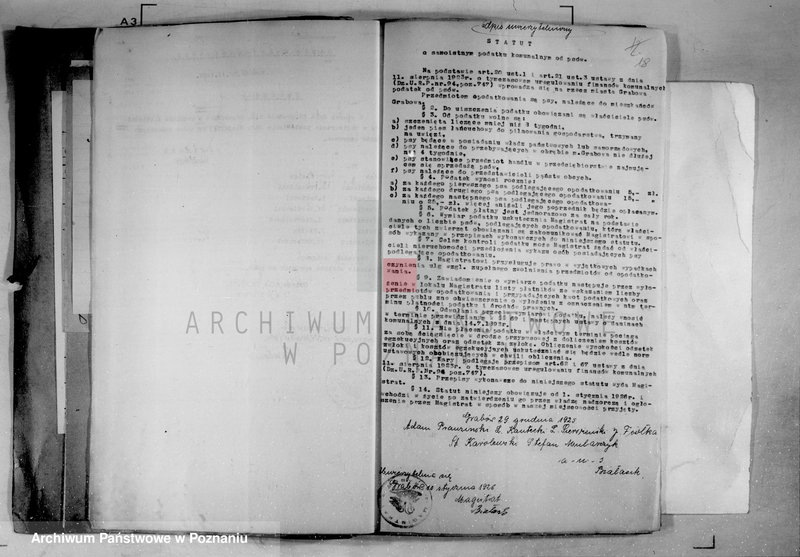 A3
odpis uwierzytelniony
18
S T A T U T
o samoistnym podatku komunalnym od psów.
Na podstawie art.20 ust.1 i art.21 ust.3 ustawy z dnia
11. sierpnia 1923r. o tymczasowem uregulowaniu finansów komunalnych
(Dz.U.R.P.nr.94,poz.747) wprowadza się na rzecz miasta Grabowa
podatek od psów.
Przedmiotem opodatkowania są psy, należące do mieszkańców
Grabowa.
§ 2. Do uiszczenia podatku obowiązani są właściciele psów.
§ 3. Od podatku wolne są:
a) szczenięta liczące mniej niż 8 tygodni,
b) jeden pies łańcuchowy do pilnowania gospodarstwa, trzymany
na uwięzi,
c) psy będące w posiadaniu władz państwowych lub samorządowych,
d) psy należące do przebywających w obrębie m.Grabowa nie dłużej
niż 4 tygodnie,
e) psy stanowiące przedmiot handlu w przedsiębiorstwie zajmują-
cem się sprzedażą psów,
f) psy należące do przedstawicieli państw obcych.
§ 4. Podatek wynosi rocznie:
a) za każdego pierwszego psa podlegającego opodatkowaniu 5,- zł.
b) za każdego drugiego psa podlegającego opodatkowaniu 15,- "
c) za każdego następnego psa podlegającego opodatkowa-
niu o 25,- zł. więcej aniżeli jego poprzednik będzie opłacanym.
§ 5. Podatek płatny jest jednorazowo za cały rok.
§ 6. Wymiar podatku uskutecznia Magistrat na podstawie
danych o liczbie psów, podlegających opodatkowaniu, które właści-
ciele tych zwierząt obowiązani są zakomunikować Magistratowi w spo-
sób wykazany w przepisach wykonawczych do niniejszego statutu.
§ 7. Celem kontroli podatku może Magistrat żądać od właści-
cieli nieruchomości przedłożenia wykazu osób posiadających psy
podlegające opodatkowaniu.
§ 8. Magistratowi przysługuje prawo w wyjątkowych wypadkach
czynienia ulg wzgl. zupełnego zwolnienia przedmiotów od opodatko-
wania.
§ 9. Zawiadomienie o wymiarze podatku następuje przez wyło-
żenie w lokalu Magistratu listy płatników ze wskazaniem liczby
przedmiotów opodatkowania i przypadających kwot podatkowych oraz
przez publiczne obwieszczenie o wyłożeniu z oznaczeniem w nim ter-
minu płatności podatku i środków prawnych.
§ 10. Odwołania przeciw wymiarowi podatku, należy wnosić
w terminie przewidzianym § 69 i następnych ustawy o daninach
komunalnych z dnia 14.7.1893r.
§ 11. Nie płacenie podatku we właściwym terminie pociąga
za sobą ściągnięcie w drodze przymusowej z doliczeniem kosztów
egzekucyjnych oraz odsetek za zwłokę. Obliczenie wysokości odsetek
zwłoki i kosztów egzekucyjnych uskuteczniać się będzie wedle norm
ustawowych obowiązujących w chwili obliczenia.
§ 12. Kary podlegają przepisom art.62 i 67 ustawy z dnia
11. sierpnia 1923r. o tymczasowem uregulowaniu finansów komunalnych
(Dz.U.R.P.Nr.94 poz.747).
§ 13. Przepisy wykonawcze do niniejszego statutu wyda Magi-
strat.
§ 14. Statut niniejszy obowiązuje od 1. stycznia 1926r. i
wchodzi w życie po zatwierdzeniu go przez władzę nadzorczą i ogło-
szenie przez Magistrat w sposób w naszej miejscowości przyjęty.
Grabów 29 grudnia 1925
Adam
St. Karolewski Stefan
Uwierzytelnia się
Grabów stycznia 1926
Magistrat
ARCHIWUM PAŃSTWOWE
W POZNANIU
Archiwum Państwowe w Poznaniu